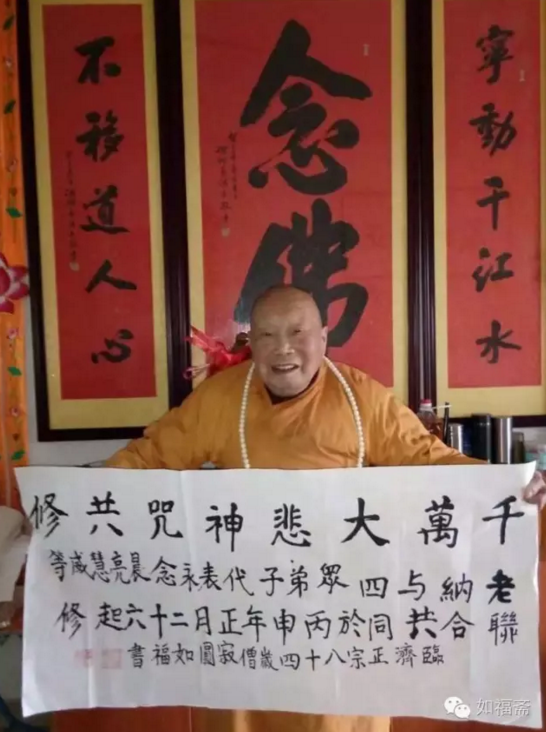 寧動千江水
念佛
不移道人心
千萬大悲神咒共修
老納与四眾弟子代表永念晨亮慧等
聯合共同於丙申年正月二十六起修
臨濟正宗八十四歲僧寂圓如福書
如福斋